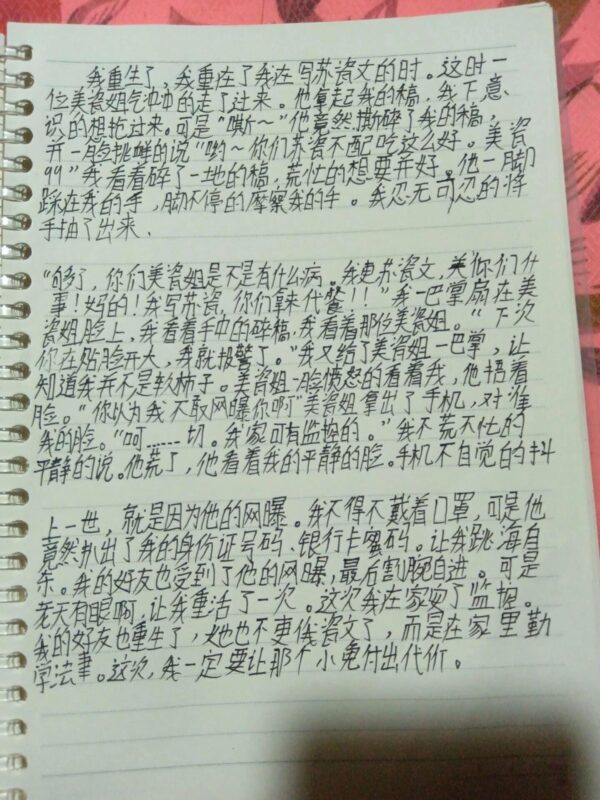 我重生了，我重在了我在写苏瓷文的时。这时一
位美瓷姐气冲冲的走了过来。他拿起我的稿，我下意
识的想抢过来。可是“嘶～”他竟然撕碎了我的稿，
并一脸挑衅的说“哟～你们苏瓷不配吃这么好。美瓷
99”我看看碎了一地的稿，荒忙的想要并好。他一脚
踩在我的手，脚不停的摩察我的手。我忍无可忍的将
手抽了出来、
“够了，你们美瓷姐是不是有什么病。我更苏瓷文，关你们什
事！妈的！我写苏瓷，你们拿来代餐！！”我一巴掌扇在美
瓷姐脸上，我看看手中的碎稿，我看着那位美瓷姐。“下次
你在贴脸开大，我就报警了。”我又给了美瓷姐一巴掌，让
知道我并不是软柿子。美瓷姐一脸愤怒的看着我，他捂着
脸。“你以为我不敢网曝你啊”美瓷姐拿出了手机，对准
我的脸。“呵……切。我家可有监控的。”我不荒不忙的
平静的说。他荒了，他看看我的平静的脸。手机不自觉的抖
上一世，就是因为他的网曝。我不得不戴着口罩，可是他
竟然扒出了我的身份证号码、银行卡蜜码。让我跳海自
杀。我的好友也受到了他的网曝，最后割腕自进。可是
老天有眼啊，让我重活了一次。这次我在家安了监控。
我的好友也重生了，她也不更俄瓷文了，而是在家里勤
学法聿。这次，我一定要让那个小兔付出代价。